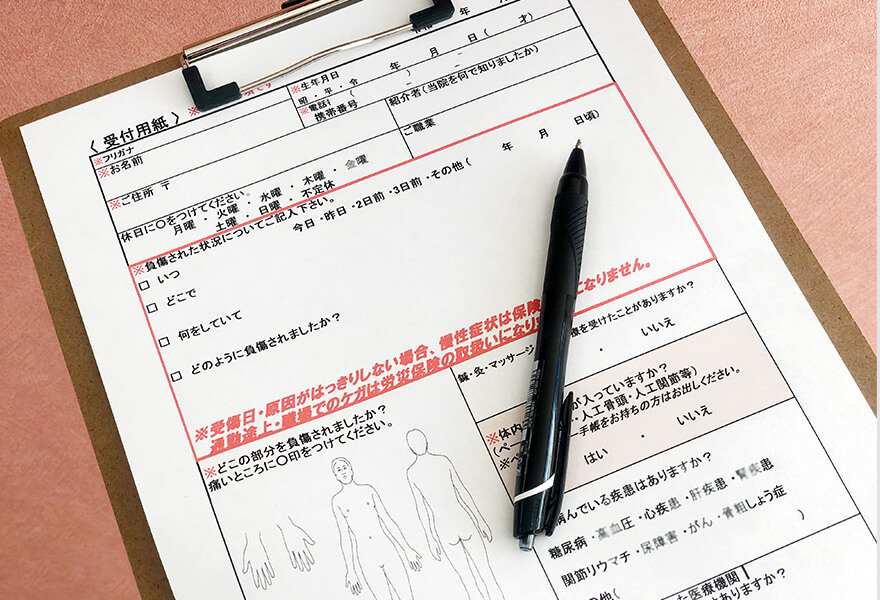 〈 受付用紙 〉 ※
※フリガナ
※お名前
※生年月日
昭 ・ 平 ・ 令 年 月 日 ( 才)
※電話( )
携帯番号
紹介者(当院を何で知りましたか)
※ご住所 〒
ご職業
休日に〇をつけてください。
月曜 ・ 火曜 ・ 水曜 ・ 木曜 ・ 金曜
土曜 ・ 日曜 ・ 不定休
※負傷された状況についてご記入下さい。
□ いつ 今日・昨日・2日前・3日前・その他( 年 月 日頃)
□ どこで
□ 何をしていて
□ どのように負傷されましたか?
※受傷日・原因がはっきりしない場合、慢性症状は保険 になりません。
通勤途上・職場でのケガは労災保険の取扱いになり
※どこの部分を負傷されましたか?
痛いところに〇印をつけてください。
鍼・灸・マッサージ 療を受けたことがありますか?
・ いいえ
※体内 が入っていますか?
(ペー ・人工骨頭・人工関節等)
※ペ 手帳をお持ちの方はお出しください。
はい ・ いいえ
病んでいる疾患はありますか?
糖尿病・高血圧・心疾患・肝疾患・腎疾患
関節リウマチ・尿障害・がん・骨粗しょう症
の他( )
た医療機関
とはありますか?